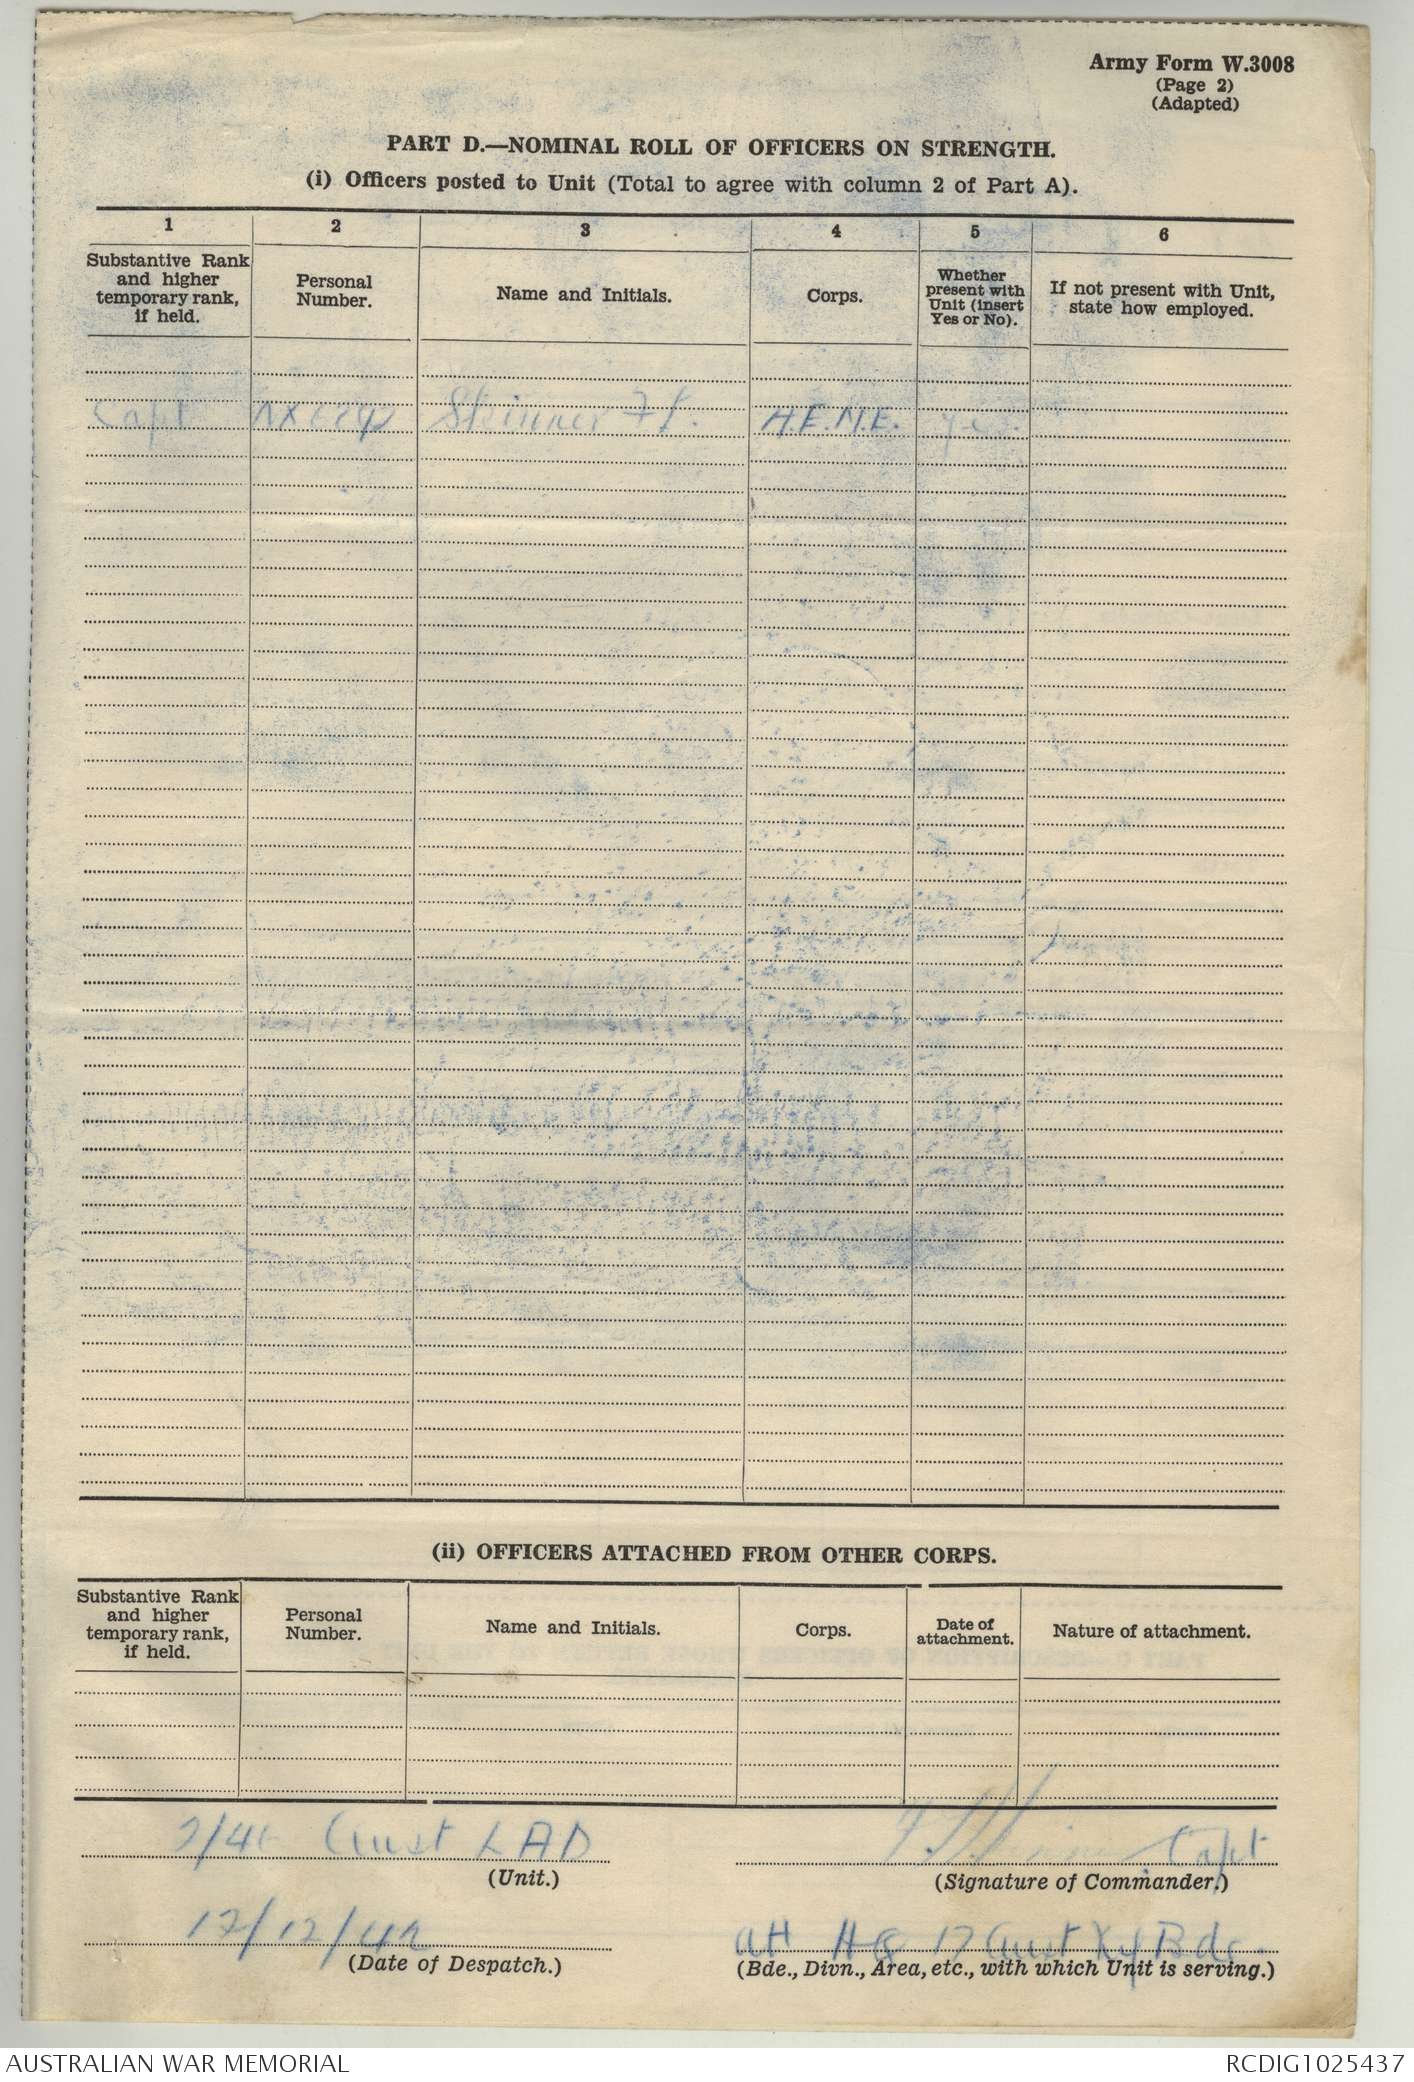 Army Form W.3008
(Page 2)
(Adapted)
PART D.—NOMINAL ROLL OF OFFICERS ON STRENGTH.
(i) Officers posted to Unit (Total to agree with column 2 of Part A).
1 2 3 4 5 6
Substantive Rank and higher temporary rank, if held.
Personal Number.
Name and Initials.
Corps.
Whether present with Unit (insert Yes or No).
If not present with Unit, state how employed.
Capt Skinner A.E.M.E. yes.
(ii) OFFICERS ATTACHED FROM OTHER CORPS.
Substantive Rank and higher temporary rank, if held.
Personal Number.
Name and Initials.
Corps.
Date of attachment.
Nature of attachment.
Aust LAD Capt
(Unit.) (Signature of Commander.)
17/12/42 att HQ 17 Aust Bde.
(Date of Despatch.) (Bde., Divn., Area, etc., with which Unit is serving.)
AUSTRALIAN WAR MEMORIAL RCDIG1025437